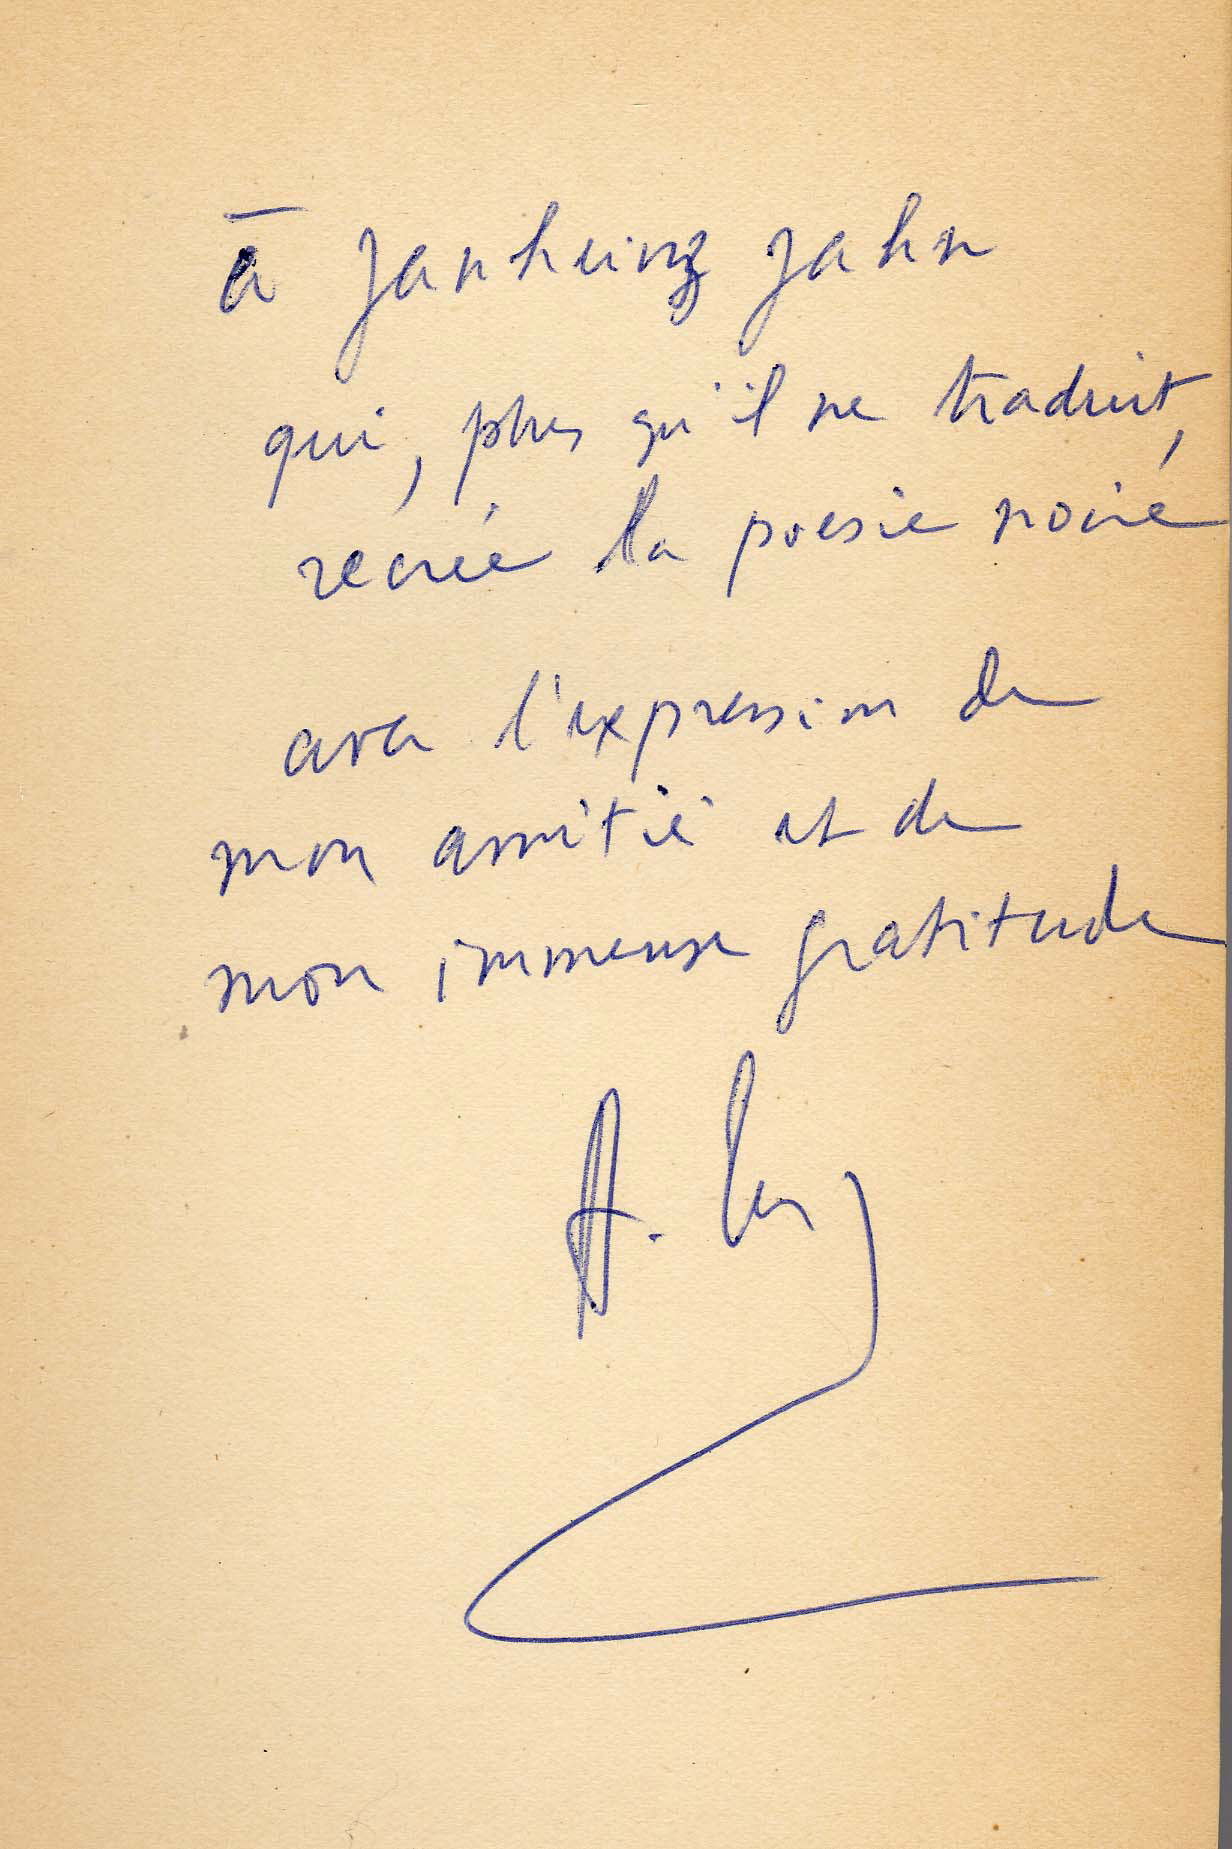 à Janheinz Jahn
qui, plus qu'il ne traduit,
recrée la poésie noire
avec l'expression de
mon amitié et de
mon immense gratitude
A.